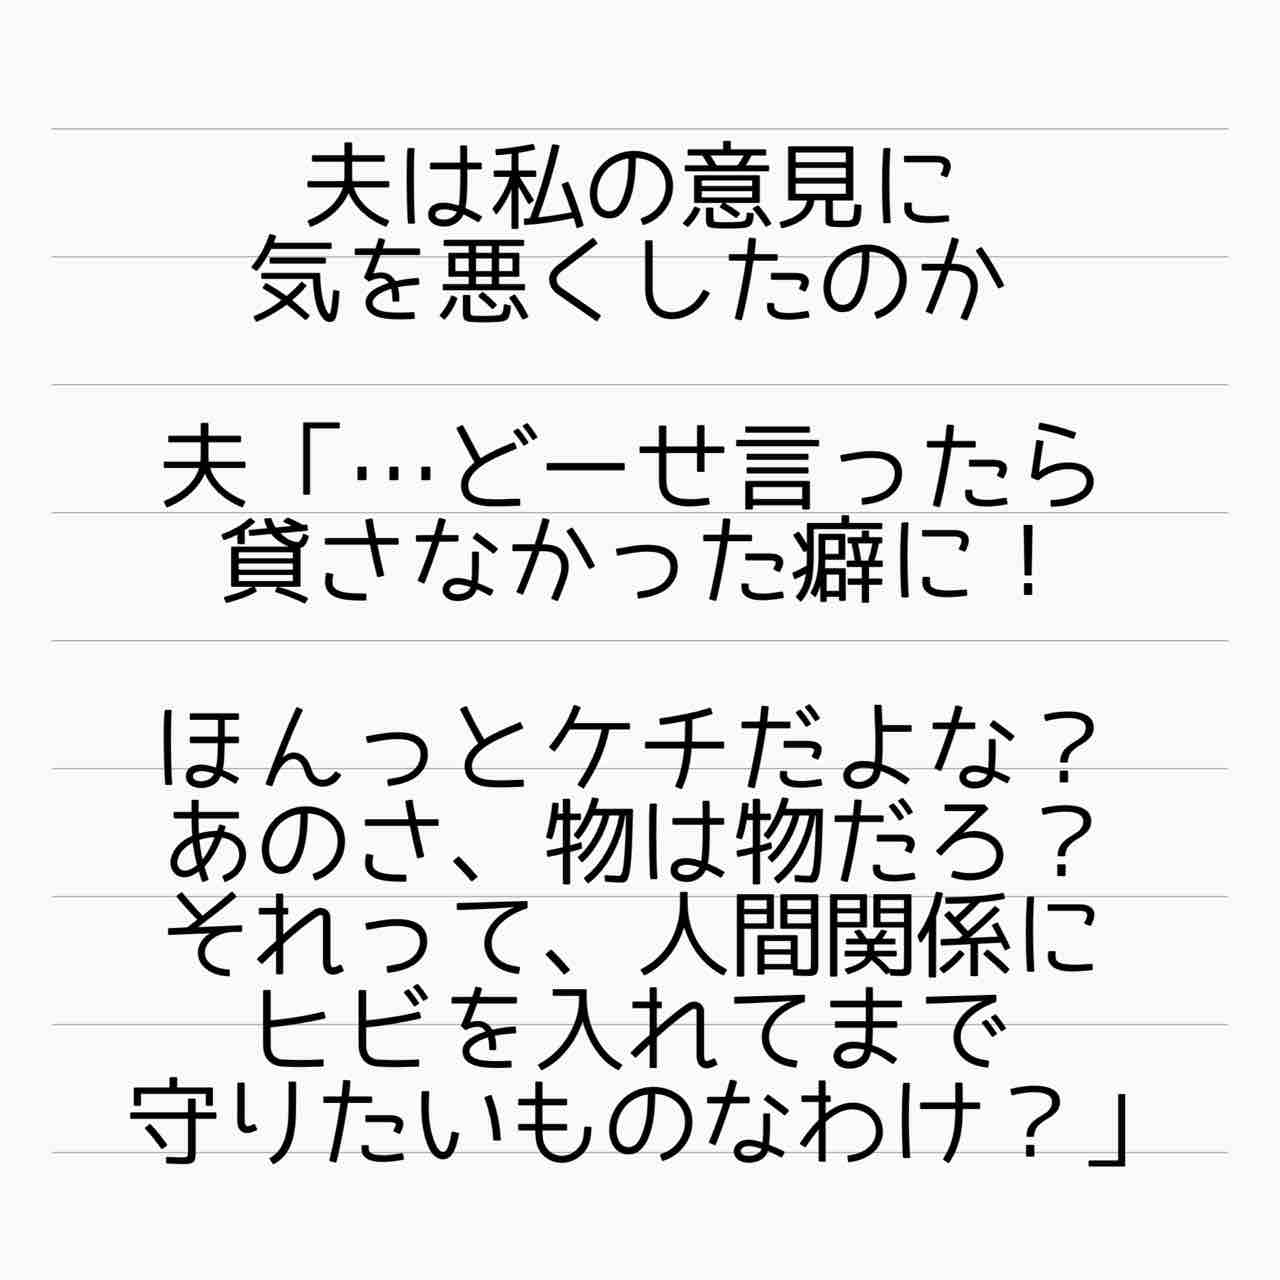 夫は私の意見に
気を悪くしたのか
夫「…どーせ言ったら
貸さなかった癖に！
ほんっとケチだよな？
あのさ、物は物だろ？
それって、人間関係に
ヒビを入れてまで
守りたいものなわけ？」